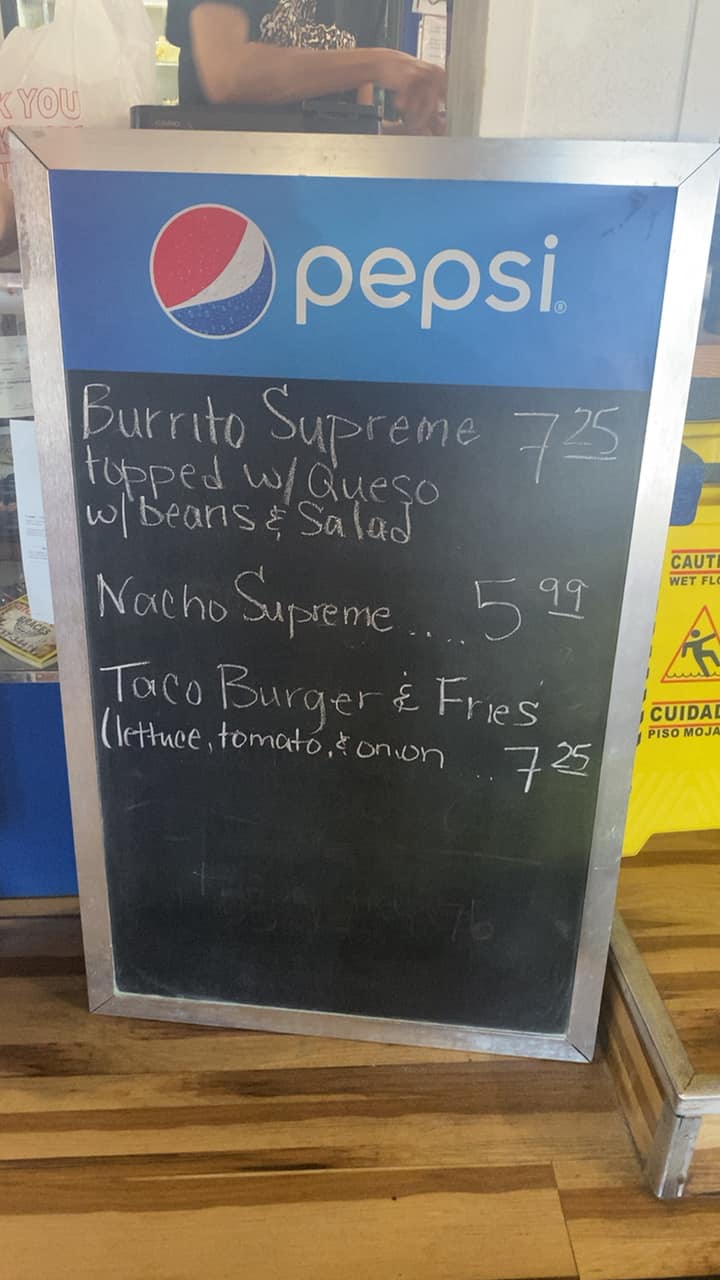 K YOU
CASIO
pepsi®
Burrito Supreme 7 25
topped w/ Queso
w/ beans & Salad
Nacho Supreme .... 5 99
Taco Burger & Fries
(lettuce, tomato, & onion .. 7 25
CAUTI
WET FLO
CUIDAD
PISO MOJA